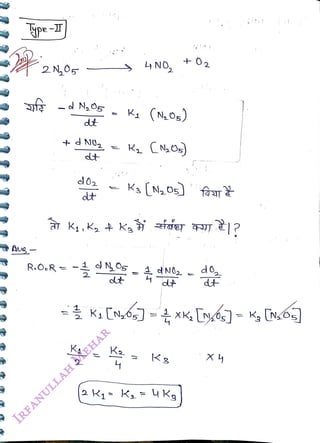 Type-II
Imp
2 N₂O₅ ⟶ 4 NO₂ + O₂
यदि - d N₂O₅ / dt = K₁ (N₂O₅)
+ d NO₂ / dt = K₂ [N₂O₅]
dO₂ / dt = K₃ [N₂O₅] दिया है
तो K₁, K₂ & K₃ में संबंध क्या है|?
Ans -
R.O.R = - 1/2 d N₂O₅ / dt = 1/4 dNO₂ / dt = dO₂ / dt
= 1/2 K₁ [N₂O₅] = 1/4 x K₂ [N₂O₅] = K₃ [N₂O₅]
K₁/2 = K₂/4 = K₃ X 4
2 K₁ = K₂ = 4 K₃
IRFANULLAH MEHAR